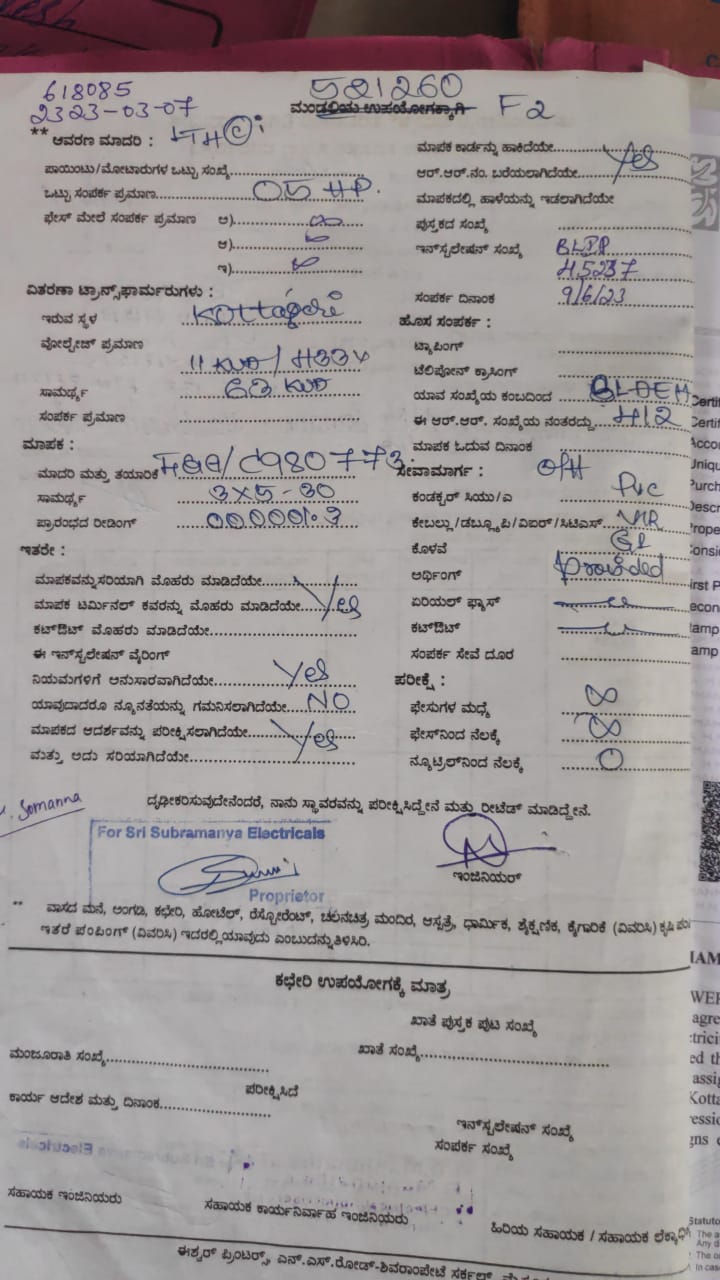 618085
2323-03-07
521260
ಮಂಡಲಿಯ ಉಪಯೋಗಕ್ಕಾಗಿ F2
** ಆವರಣ ಮಾದರಿ :
ಪಾಯಿಂಟು/ಮೋಟಾರುಗಳ ಒಟ್ಟು ಸಂಖ್ಯೆ
ಒಟ್ಟು ಸಂಪರ್ಕ ಪ್ರಮಾಣ 05 HP.
ಫೇಸ್ ಮೇಲೆ ಸಂಪರ್ಕ ಪ್ರಮಾಣ ಅ)
ಆ)
ಇ)
ವಿತರಣಾ ಟ್ರಾನ್ಸ್‌ಫಾರ್ಮರುಗಳು :
ಇರುವ ಸ್ಥಳ Kottageri
ವೋಲ್ಟೇಜ್ ಪ್ರಮಾಣ
ಸಾಮರ್ಥ್ಯ 63
ಸಂಪರ್ಕ ಪ್ರಮಾಣ
ಮಾಪಕ :
ಮಾದರಿ ಮತ್ತು ತಯಾರಿಕೆ
ಸಾಮರ್ಥ್ಯ 3X5-30
ಪ್ರಾರಂಭದ ರೀಡಿಂಗ್ 000001.3
ಇತರೇ :
ಮಾಪಕವನ್ನು ಸರಿಯಾಗಿ ಮೊಹರು ಮಾಡಿದೆಯೇ
ಮಾಪಕ ಟರ್ಮಿನಲ್ ಕವರನ್ನು ಮೊಹರು ಮಾಡಿದೆಯೇ Yes
ಕಟ್‌ಔಟ್ ಮೊಹರು ಮಾಡಿದೆಯೇ
ಈ ಇನ್‌ಸ್ಟಲೇಷನ್ ವೈರಿಂಗ್
ನಿಯಮಗಳಿಗೆ ಅನುಸಾರವಾಗಿದೆಯೇ Yes
ಯಾವುದಾದರೂ ನ್ಯೂನತೆಯನ್ನು ಗಮನಿಸಲಾಗಿದೆಯೇ NO
ಮಾಪಕದ ಆದರ್ಶವನ್ನು ಪರೀಕ್ಷಿಸಲಾಗಿದೆಯೇ Yes
ಮತ್ತು ಅದು ಸರಿಯಾಗಿದೆಯೇ
ಮಾಪಕ ಕಾರ್ಡನ್ನು ಹಾಕಿದೆಯೇ Yes
ಆರ್.ಆರ್.ನಂ. ಬರೆಯಲಾಗಿದೆಯೇ
ಮಾಪಕದಲ್ಲಿ ಹಾಳೆಯನ್ನು ಇಡಲಾಗಿದೆಯೇ
ಪುಸ್ತಕದ ಸಂಖ್ಯೆ
ಇನ್‌ಸ್ಟಲೇಷನ್ ಸಂಖ್ಯೆ
45237
ಸಂಪರ್ಕ ದಿನಾಂಕ 9/6/23
ಹೊಸ ಸಂಪರ್ಕ :
ಟ್ಯಾಪಿಂಗ್
ಟೆಲಿಪೋನ್ ಕ್ರಾಸಿಂಗ್
ಯಾವ ಸಂಖ್ಯೆಯ ಕಂಬದಿಂದ
ಈ ಆರ್.ಆರ್. ಸಂಖ್ಯೆಯ ನಂತರದ್ದು 412
ಮಾಪಕ ಓದುವ ದಿನಾಂಕ
ಸೇವಾಮಾರ್ಗ : O/H
ಕಂಡಕ್ಟರ್ ಸಿಯು/ಎ PVC
ಕೇಬಲ್ಲು/ಡಬ್ಲ್ಯೂಪಿ/ವಿಐಆರ್/ಸಿಟಿಎಸ್ VIR
ಕೊಳವೆ GI
ಅರ್ಥಿಂಗ್ provided
ಏರಿಯಲ್ ಫ್ಯೂಸ್
ಕಟ್‌ಔಟ್
ಸಂಪರ್ಕ ಸೇವೆ ದೂರ
ಪರೀಕ್ಷೆ :
ಫೇಸುಗಳ ಮಧ್ಯೆ ∞
ಫೇಸ್‌ನಿಂದ ನೆಲಕ್ಕೆ ∞
ನ್ಯೂಟ್ರಿಲ್‌ನಿಂದ ನೆಲಕ್ಕೆ 0
ದೃಢೀಕರಿಸುವುದೇನೆಂದರೆ, ನಾನು ಸ್ಥಾವರವನ್ನು ಪರೀಕ್ಷಿಸಿದ್ದೇನೆ ಮತ್ತು ರೀಟೆಡ್ ಮಾಡಿದ್ದೇನೆ.
Somanna
For Sri Subramanya Electricals
Proprietor
ಇಂಜಿನಿಯರ್
** ವಾಸದ ಮನೆ, ಅಂಗಡಿ, ಕಛೇರಿ, ಹೋಟೆಲ್, ರೆಸ್ಟೋರೆಂಟ್, ಚಲನಚಿತ್ರ ಮಂದಿರ, ಆಸ್ಪತ್ರೆ, ಧಾರ್ಮಿಕ, ಶೈಕ್ಷಣಿಕ, ಕೈಗಾರಿಕೆ (ವಿವರಿಸಿ) ಕೃಷಿ
ಇತರೆ ಪಂಪಿಂಗ್ (ವಿವರಿಸಿ) ಇದರಲ್ಲಿ ಯಾವುದು ಎಂಬುದನ್ನು ತಿಳಿಸಿರಿ.
ಕಛೇರಿ ಉಪಯೋಗಕ್ಕೆ ಮಾತ್ರ
ಖಾತೆ ಪುಸ್ತಕ ಪುಟ ಸಂಖ್ಯೆ
ಮಂಜೂರಾತಿ ಸಂಖ್ಯೆ
ಖಾತೆ ಸಂಖ್ಯೆ
ಪರೀಕ್ಷಿಸಿದೆ
ಕಾರ್ಯ ಆದೇಶ ಮತ್ತು ದಿನಾಂಕ
ಇನ್‌ಸ್ಟಲೇಷನ್ ಸಂಖ್ಯೆ
ಸಂಪರ್ಕ ಸಂಖ್ಯೆ
ಸಹಾಯಕ ಇಂಜಿನಿಯರು
ಸಹಾಯಕ ಕಾರ್ಯನಿರ್ವಾಹ ಇಂಜಿನಿಯರು
ಹಿರಿಯ ಸಹಾಯಕ / ಸಹಾಯಕ
ಈಶ್ವರ್ ಪ್ರಿಂಟರ್ಸ್, ಎನ್.ಎಸ್.ರೋಡ್-ಶಿವರಾಂಪೇಟೆ ಸರ್ಕಲ್,